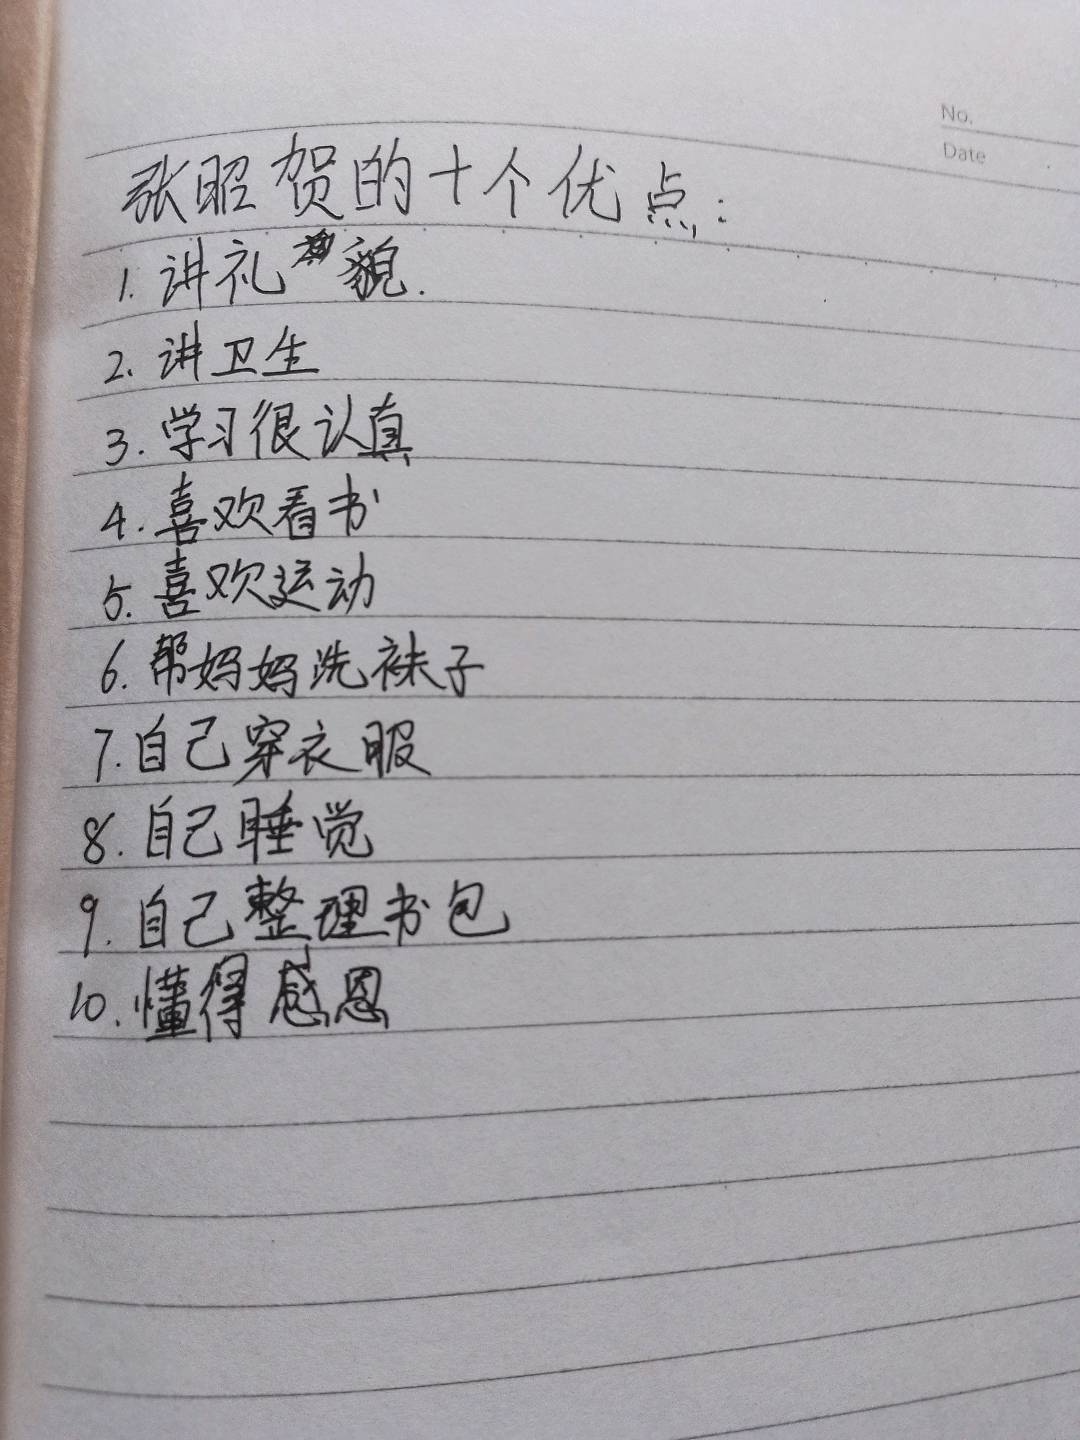 No.
Date
张昭贺的十个优点:
1. 讲礼貌.
2. 讲卫生
3. 学习很认真
4. 喜欢看书
5. 喜欢运动
6. 帮妈妈洗袜子
7. 自己穿衣服
8. 自己睡觉
9. 自己整理书包
10. 懂得感恩